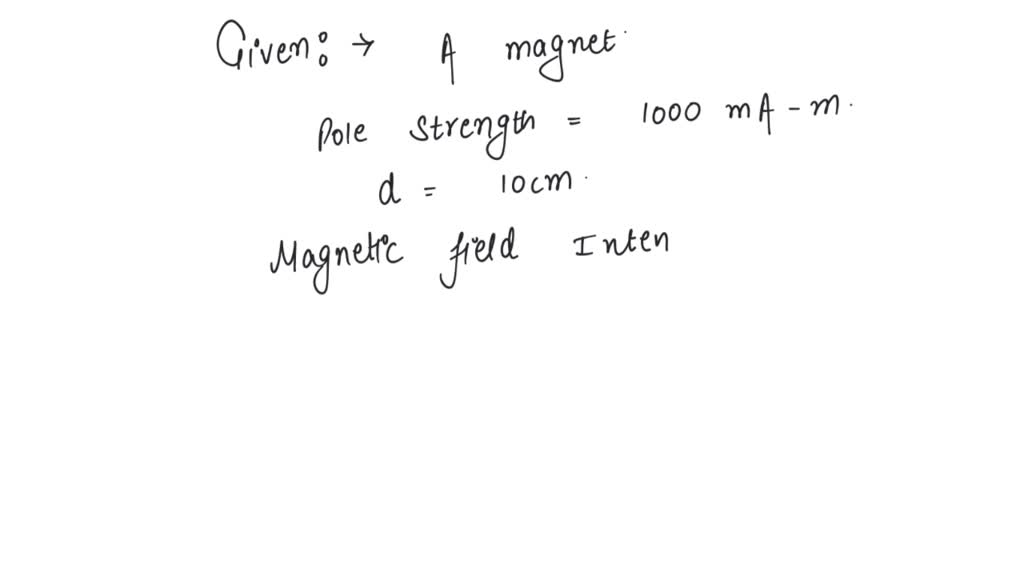 Given: → A magnet.
Pole strength = 1000 mA-m.
d = 10cm.
Magnetic field Inten